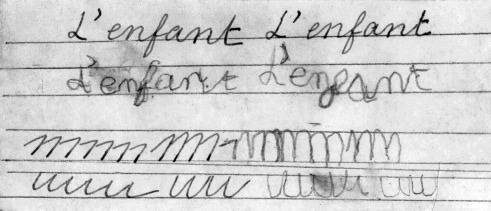 L'enfant L'enfant
L'enfant L'enfant